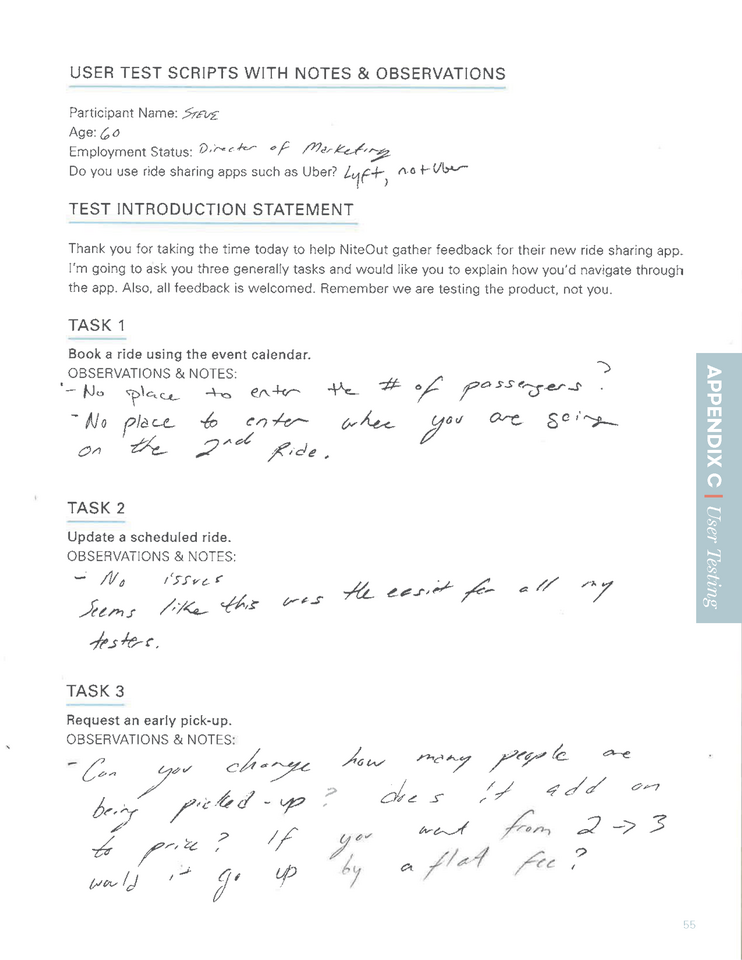 USER TEST SCRIPTS WITH NOTES & OBSERVATIONS
Participant Name: STEVE
Age: 60
Employment Status: Director of Marketing
Do you use ride sharing apps such as Uber? Lyft, not Uber
TEST INTRODUCTION STATEMENT
Thank you for taking the time today to help NiteOut gather feedback for their new ride sharing app.
I'm going to ask you three generally tasks and would like you to explain how you'd navigate through
the app. Also, all feedback is welcomed. Remember we are testing the product, not you.
TASK 1
Book a ride using the event calendar.
OBSERVATIONS & NOTES:
- No place to enter the # of passengers?
- No place to enter whee you are going
on the 2nd Ride.
TASK 2
Update a scheduled ride.
OBSERVATIONS & NOTES:
- No issues
Seems like this was the easist for all my
testers.
TASK 3
Request an early pick-up.
OBSERVATIONS & NOTES:
- Can you change how many people are
being picked-up? does it add on
to price? If you went from 2 → 3
would it go up by a flat fee?
APPENDIX C | User Testing
55